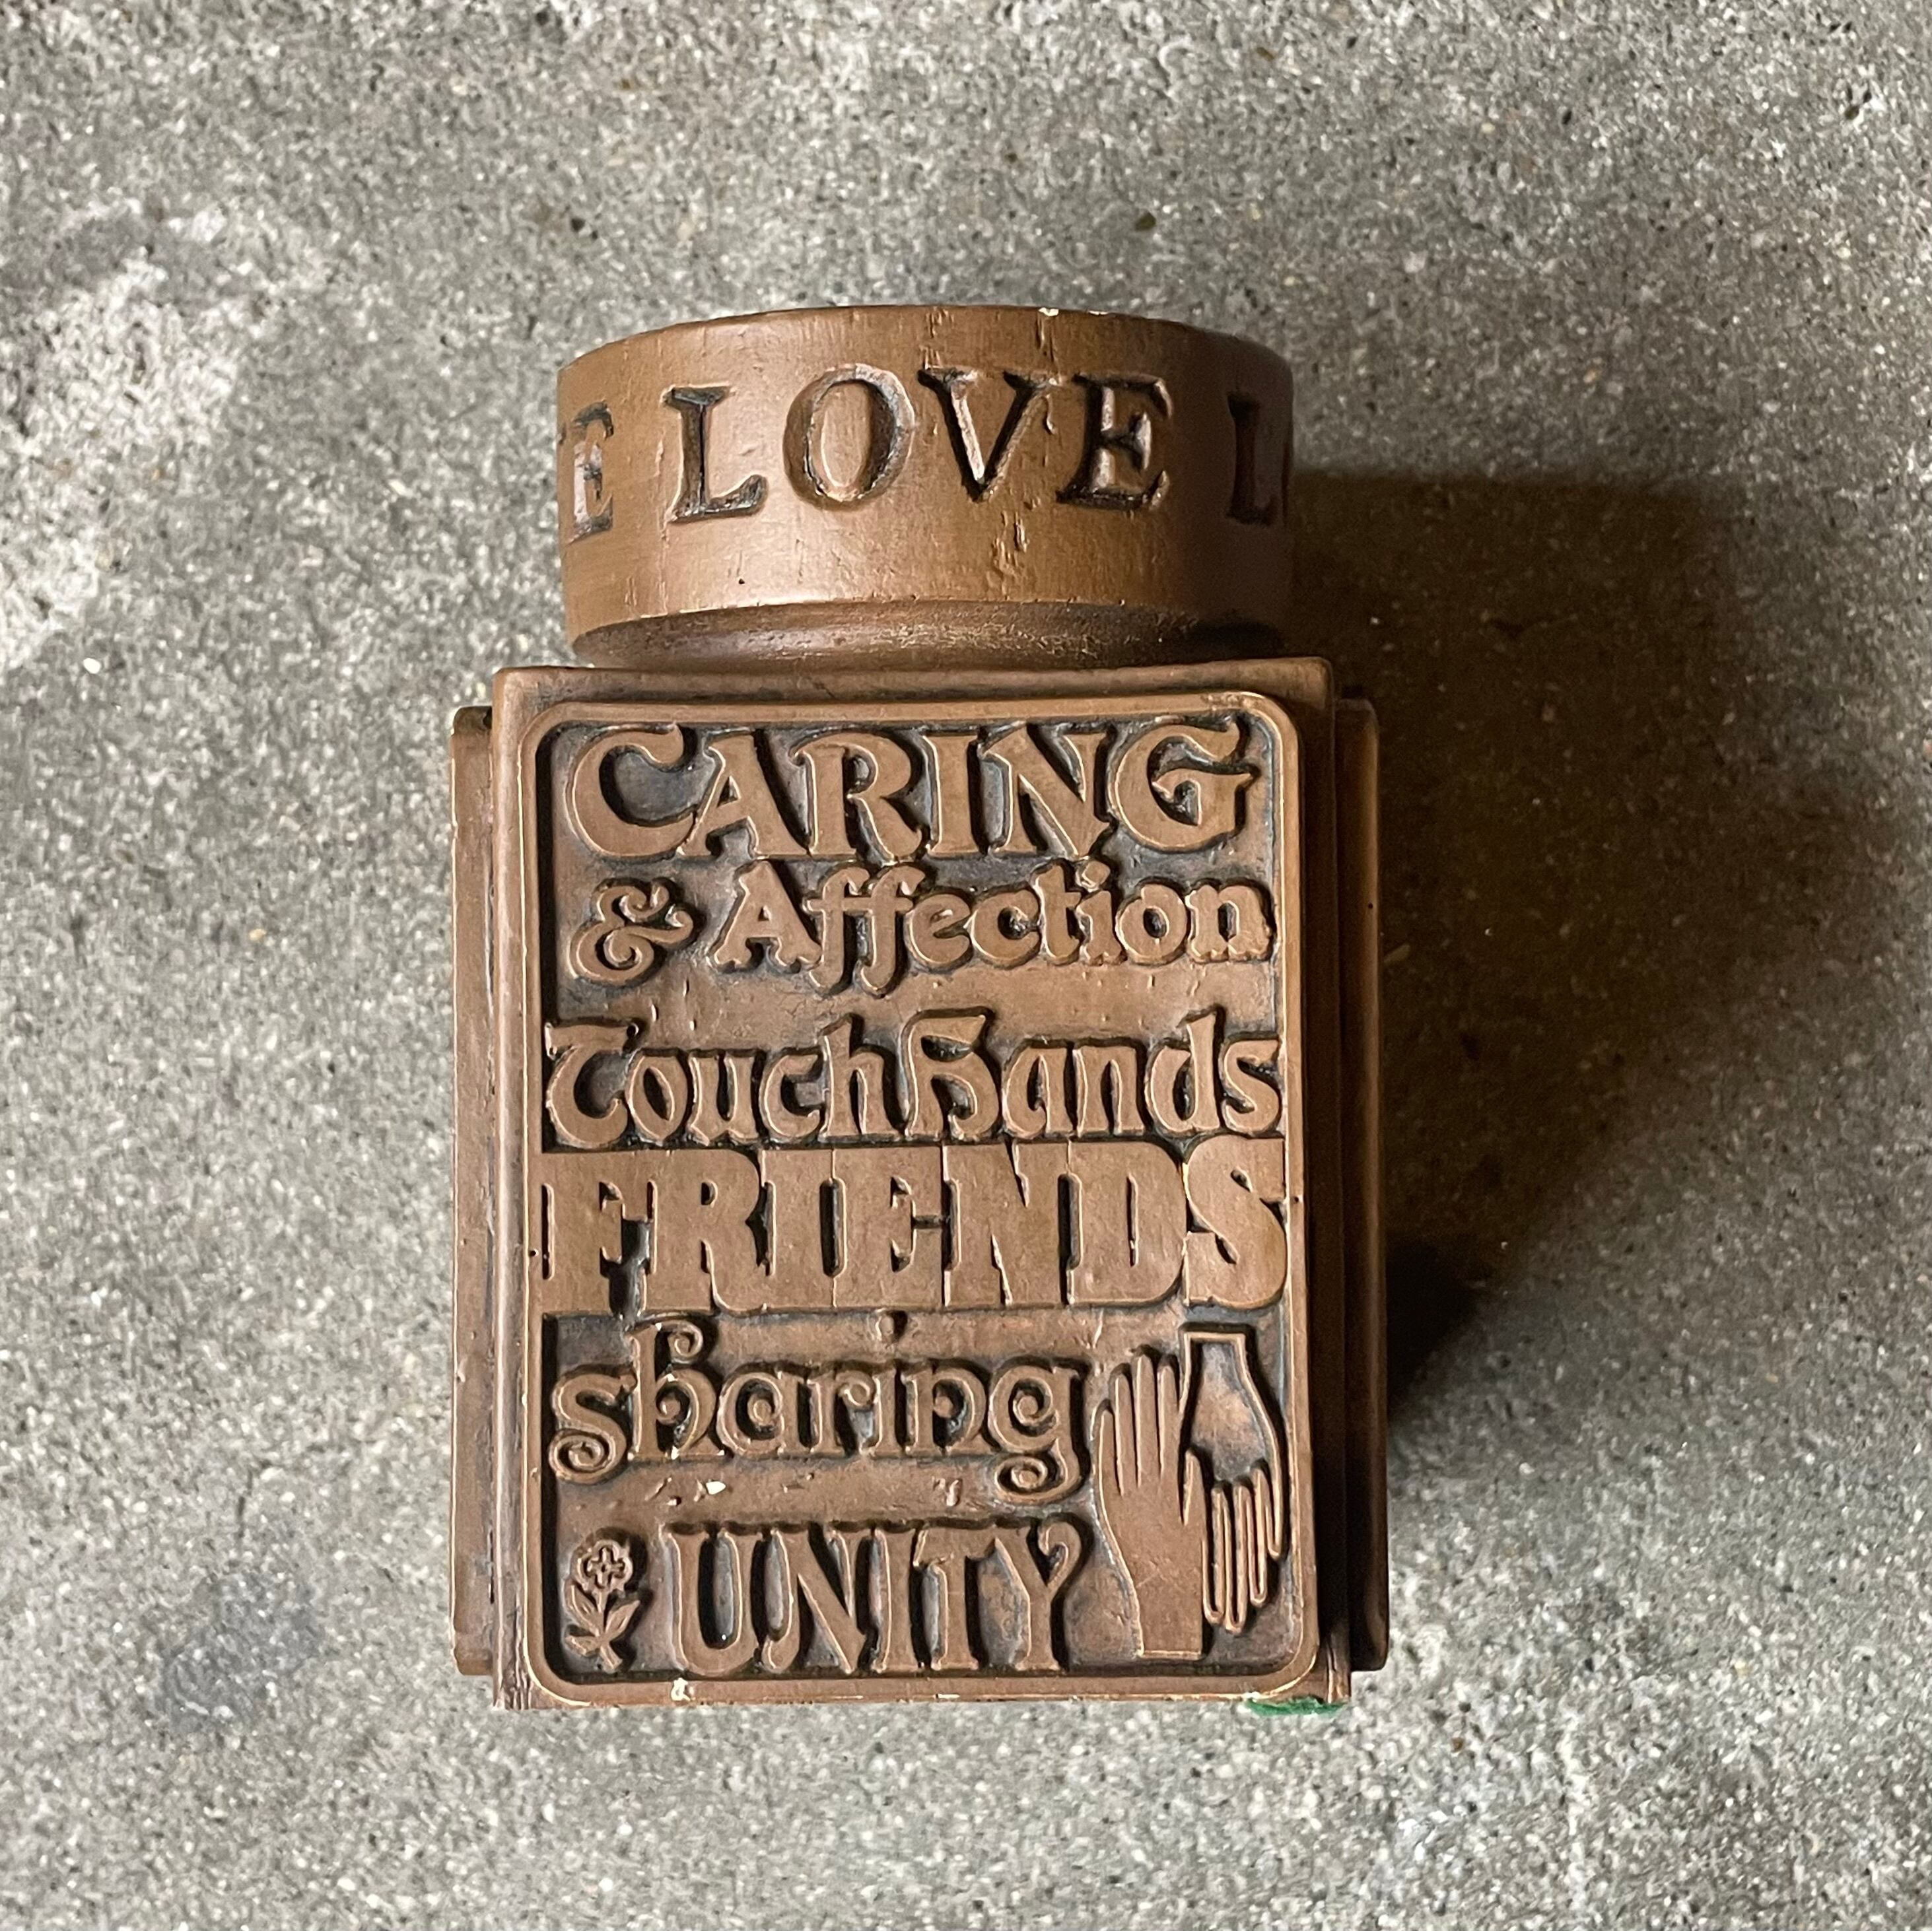 E LOVE L
CARING
& Affection
Touch Hands
FRIENDS
sharing
UNITY